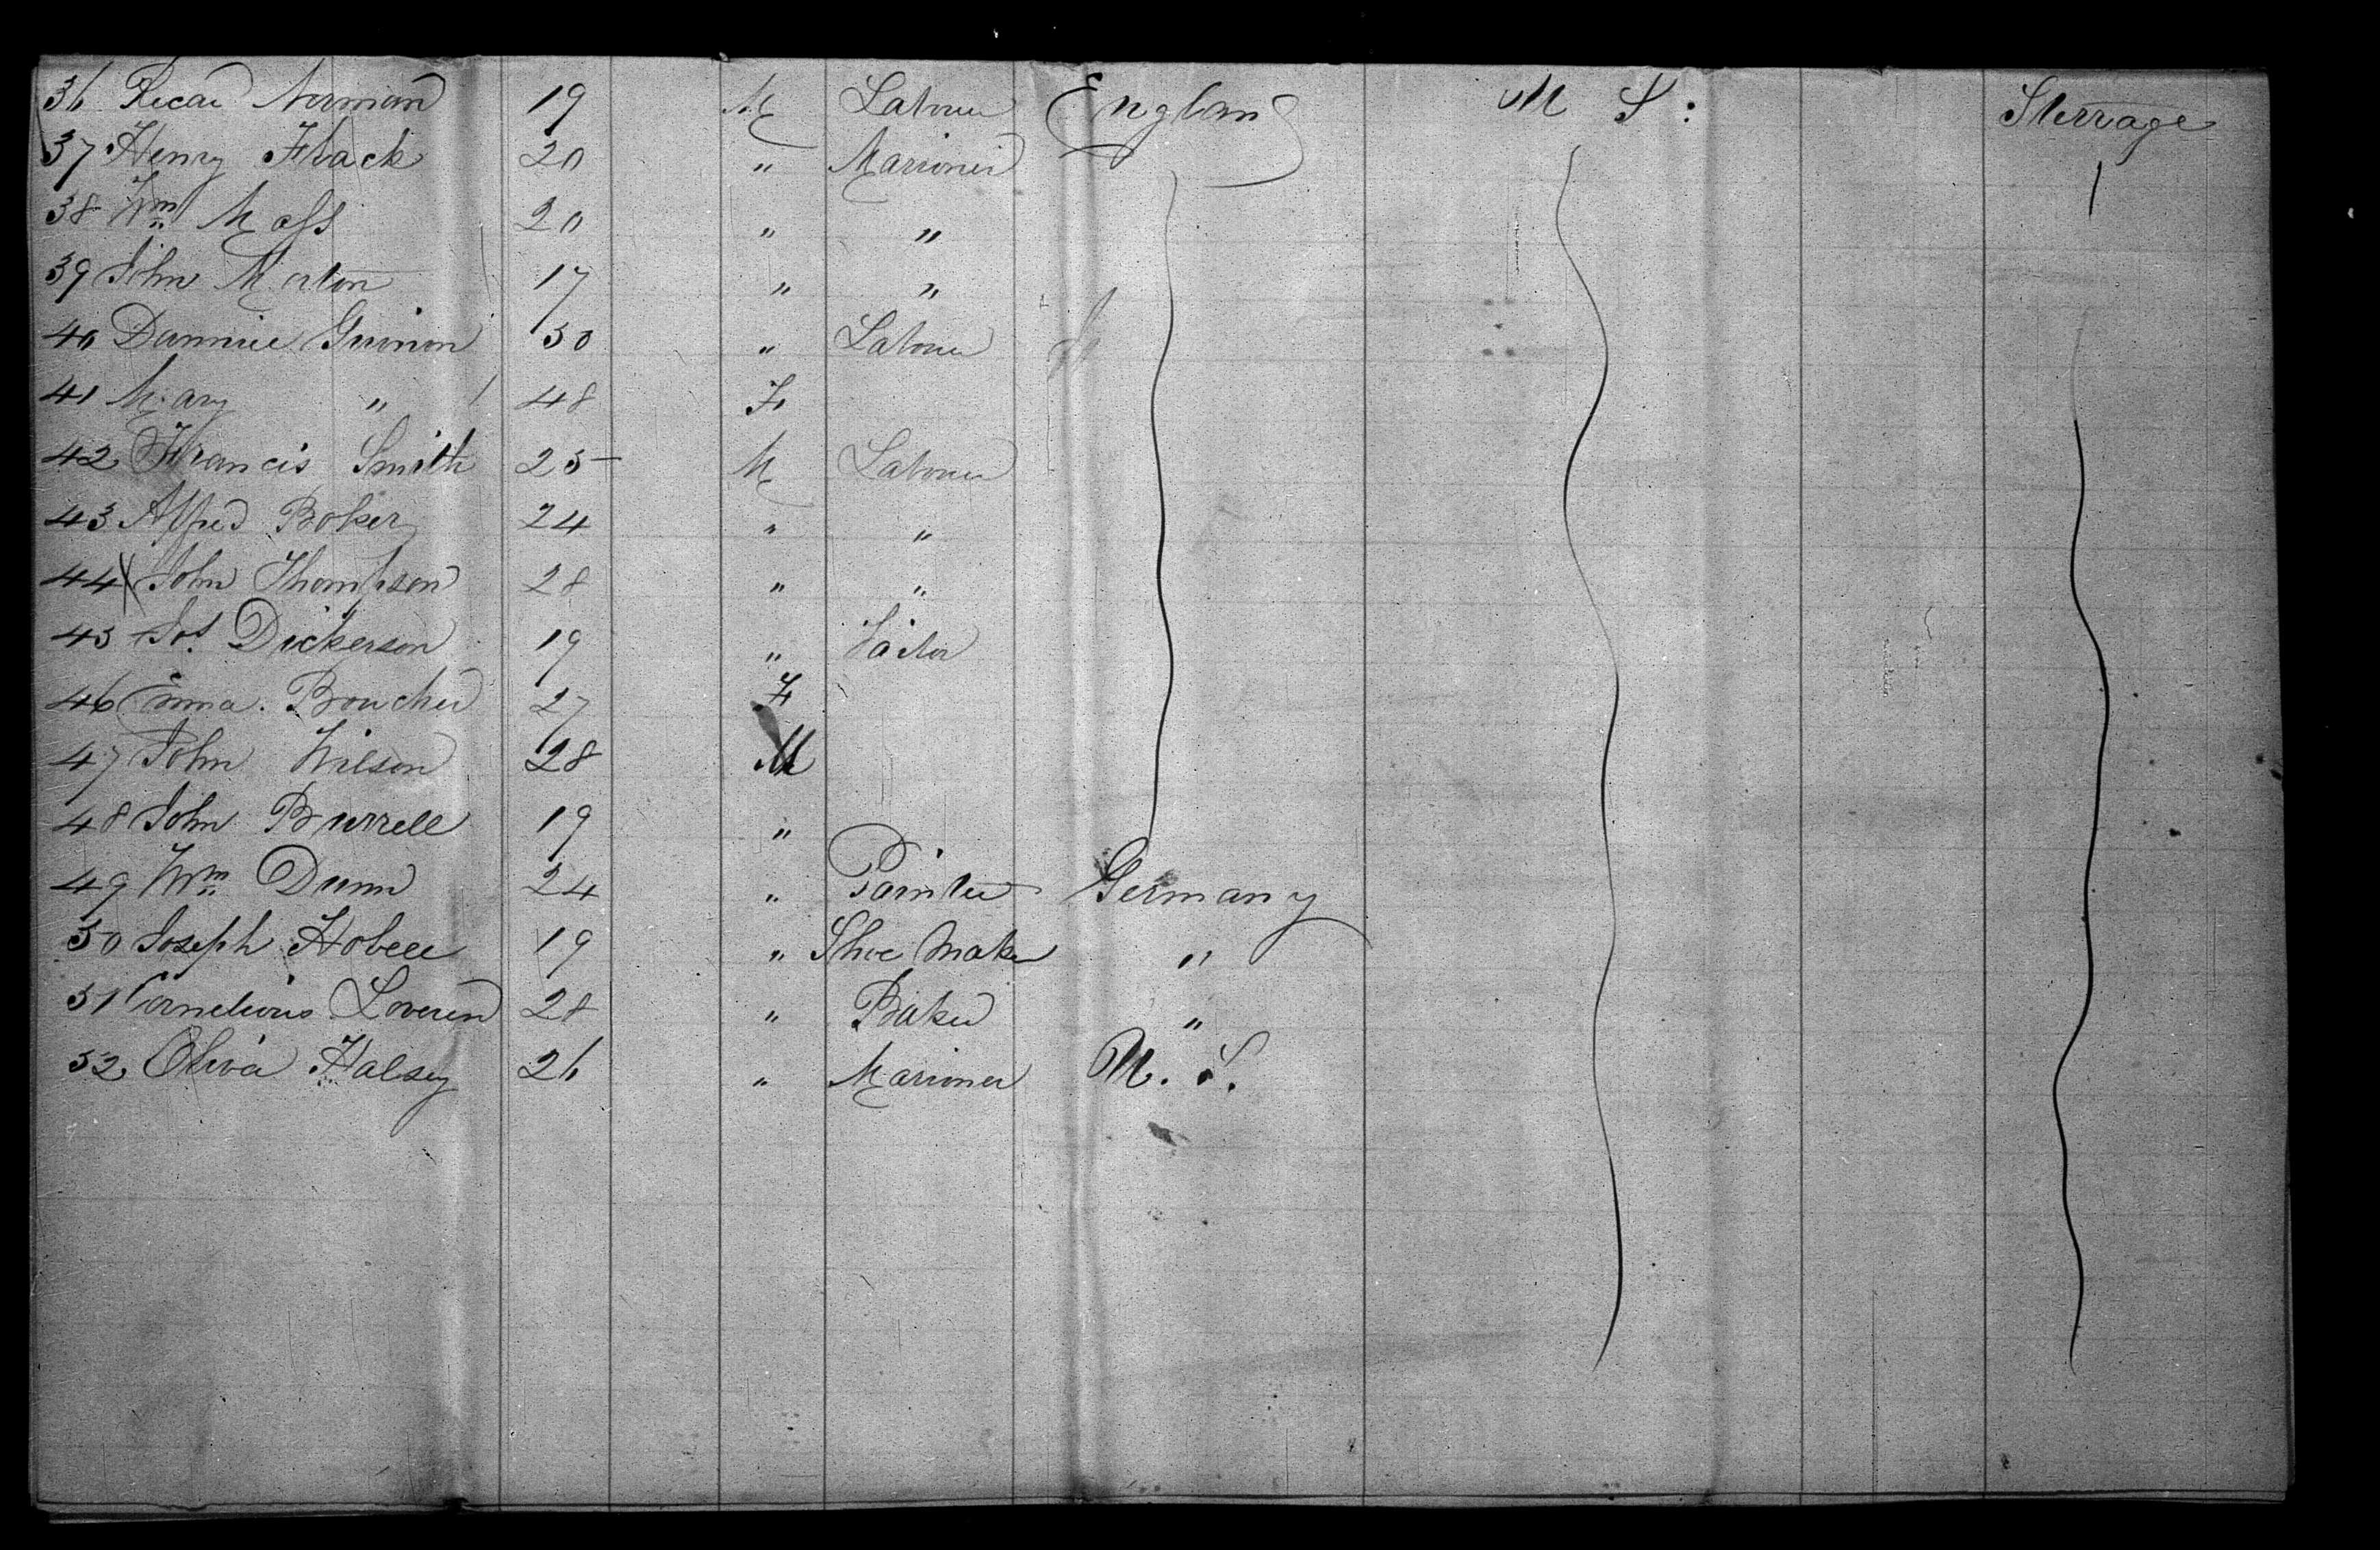 36 Norman 19 M Labourer England U S: Sterrage
37 Henry Flack 20 " Marriner
38 Wm Moss 20 " "
39 John Morton 17 " "
40 Guinon 50 " Labourer
41 Mary " 48 F
42 Francis Smith 25 M Labourer
43 Alfred Boker 24 " "
44 X John Thompson 28 " "
45 Jos. Dickerson 19 " Tailor
46 Emma Boucher 27 F
47 John Wilson 28 M
48 John Burrell 19 "
49 Wm Dunn 24 " Painter Germany
50 Joseph 19 " Shoe Maker "
51 Cornelious Loveren 28 " Baker "
52 Oliva Halsey 26 " Marriner U. S.